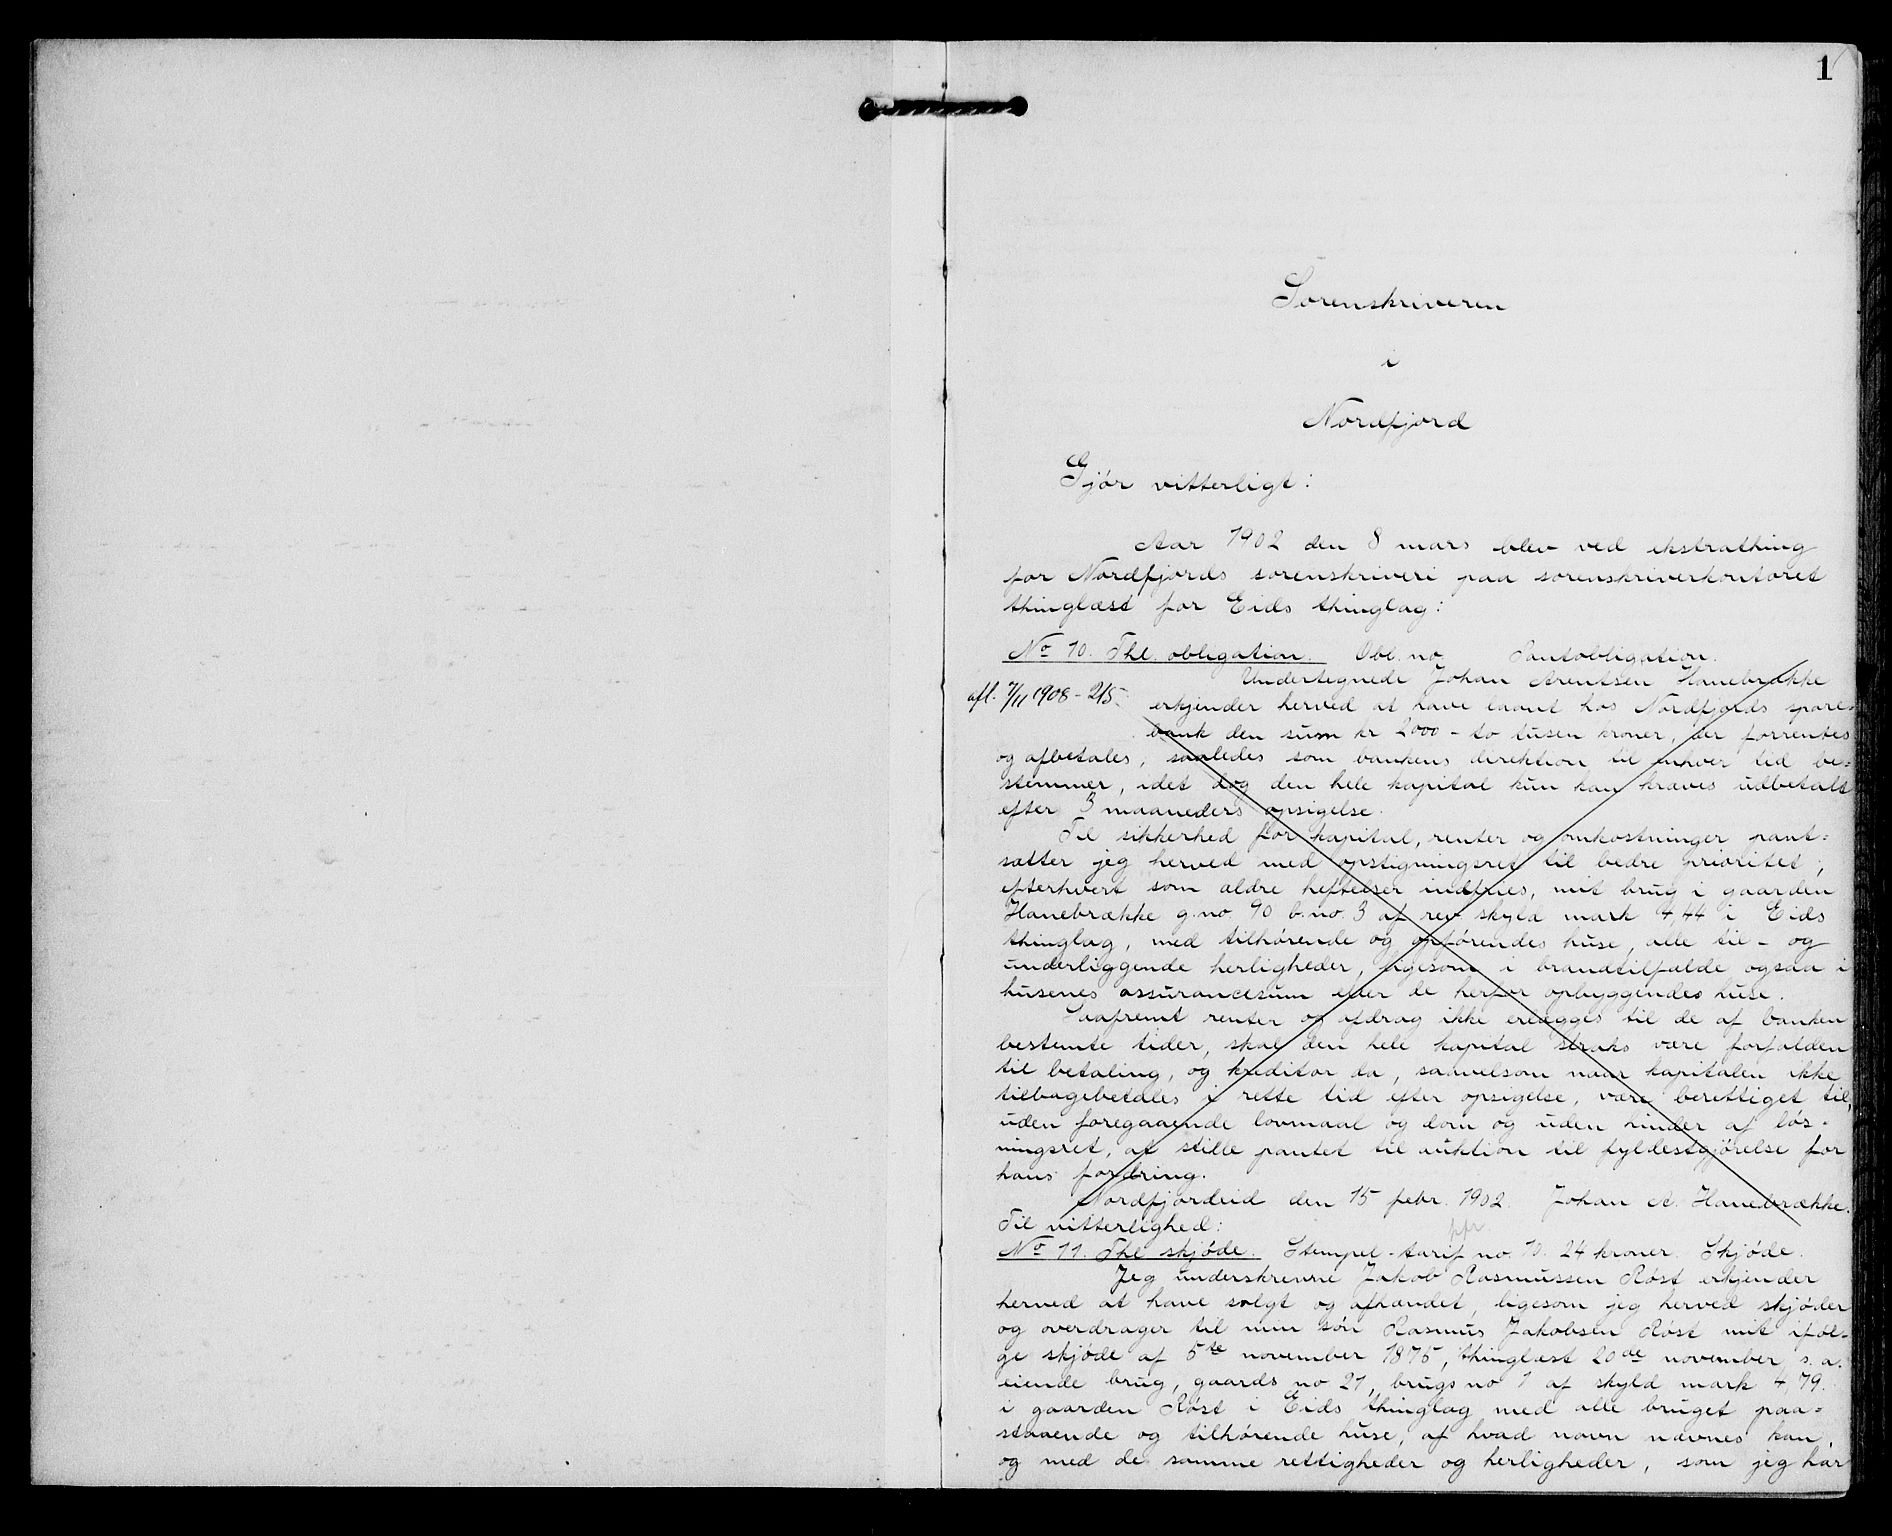 1
Sorenskriveren
i
Nordfjord
Gjór vitterligt:
Aar 1902 den 8 mars blev ved ekstrathing
for Nordfjords sorenskriveri paa sorenskriverkontoret
thinglæst for Eids thinglag:
No 10. Thl. obligation. Obl. no Pantobligation.
Undertegnede Johan Arentsen Hanebrække
afl. 7/11 1908 - 215.
erkjender herved at have laant hos Nordfjords spare=
bank den sum kr 2000 - to tusen kroner, der forrentes
og afbetales, saaledes som bankens direktion til enhver tid be=
stemmer, idet dog den hele kapital kun kan kræves udbetalt
efter 3 maaneders opsigelse.
Til sikkerhed for kapital, renter og omkostninger pant=
sætter jeg herved med opstigningsret til bedre prioritet,
efterhvert som ældre heftelser indfries, mit brug i gaarden
Hanebrække g.no. 90 b.no. 3 af rev. skyld mark 4,44 i Eids
thinglag, med tilhørende og opførendes huse, alle til- og
underliggende herligheder, ligesom i brandtilfælde ogsaa i
husenes assurancesum eller de herfor opbyggendes huse.
Saafremt renter og afdrag ikke erlægges til de af banken
bestemte tider, skal den hele kapital straks være forfalden
til betaling, og kreditor da, saavelsom naar kapitalen ikke
tilbagebetales i rette tid efter opsigelse, være berettiget til,
uden foregaaende lovmaal og dom og uden hinder af løs-
ningsret, at stille pantet til auktion til fyldestgjørelse for
hans fordring.
Nordfjordeid den 15 febr. 1902. Johan A. Hanebrække.
Til vitterlighed: ppr.
No 11. Thl skjóde. Stempel-tarif no. 10. 24 kroner. Skjóde.
Jeg underskrevne Jakob Rasmussen Róst erkjender
herved at have solgt og afhændet, ligesom jeg herved skjóder
og overdrager til min són Rasmus Jakobsen Róst mit ifól-
ge skjóde af 5te november 1875, thinglæst 20de november s.a.
eiende brug, gaards no 21, brugs no 1 af skyld mark 4,79.
i gaarden Róst i Eids thinglag med alle bruget paa=
staaende og tilhørende huse, af hvad navn nævnes kan,
og med de samme rettigheder og herligheder, som jeg har